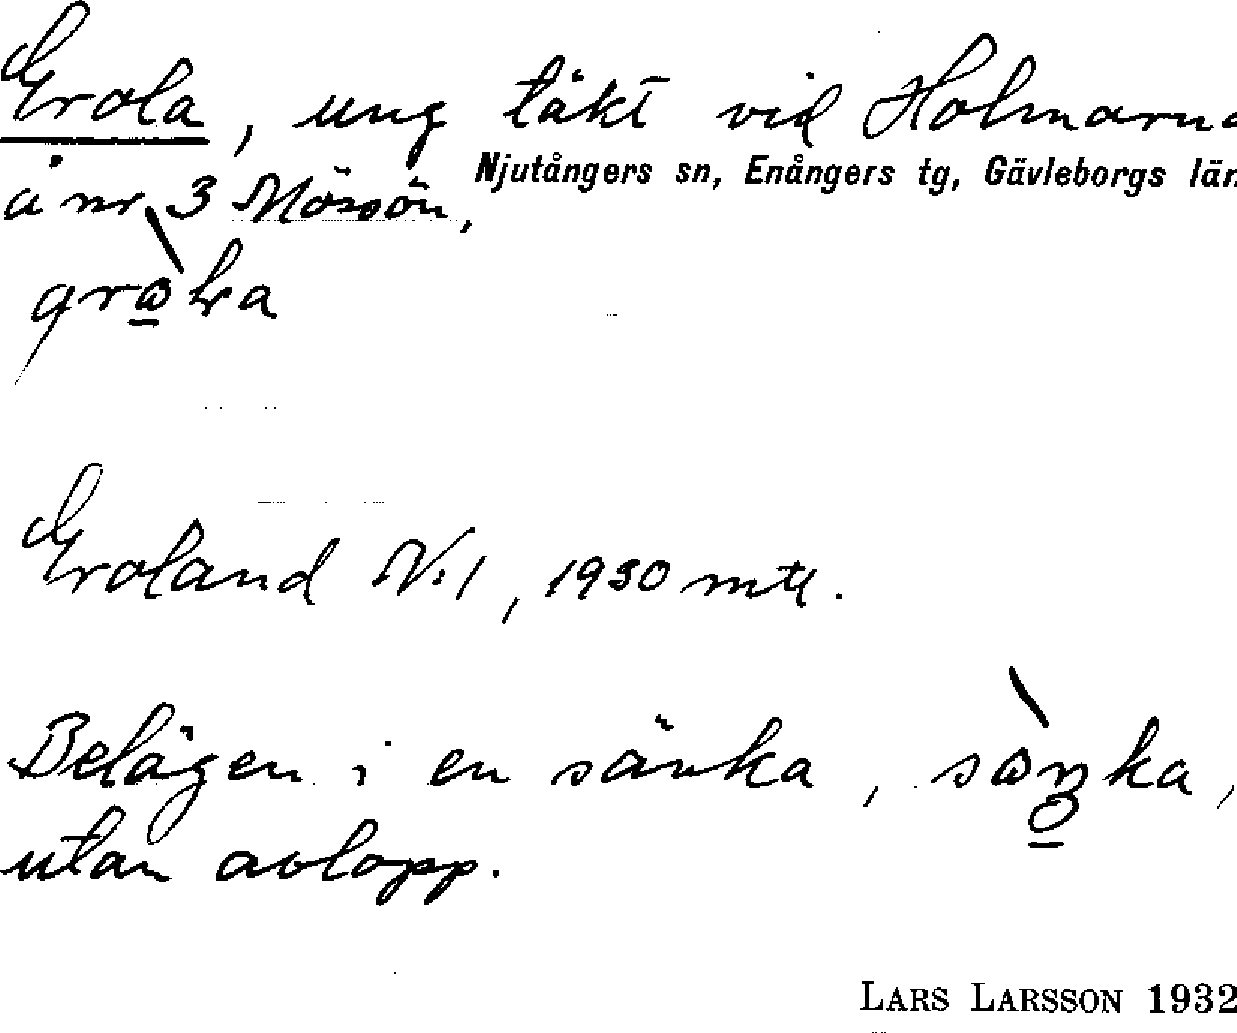 Grola, ung täkt vid Holmarna
Njutångers sn, Enångers tg, Gävleborgs län
å nr 3 Mössön,
Groland N:1, 1930 mtl.
Belägen i en sänka,
utan avlopp.
LARS LARSSON 1932